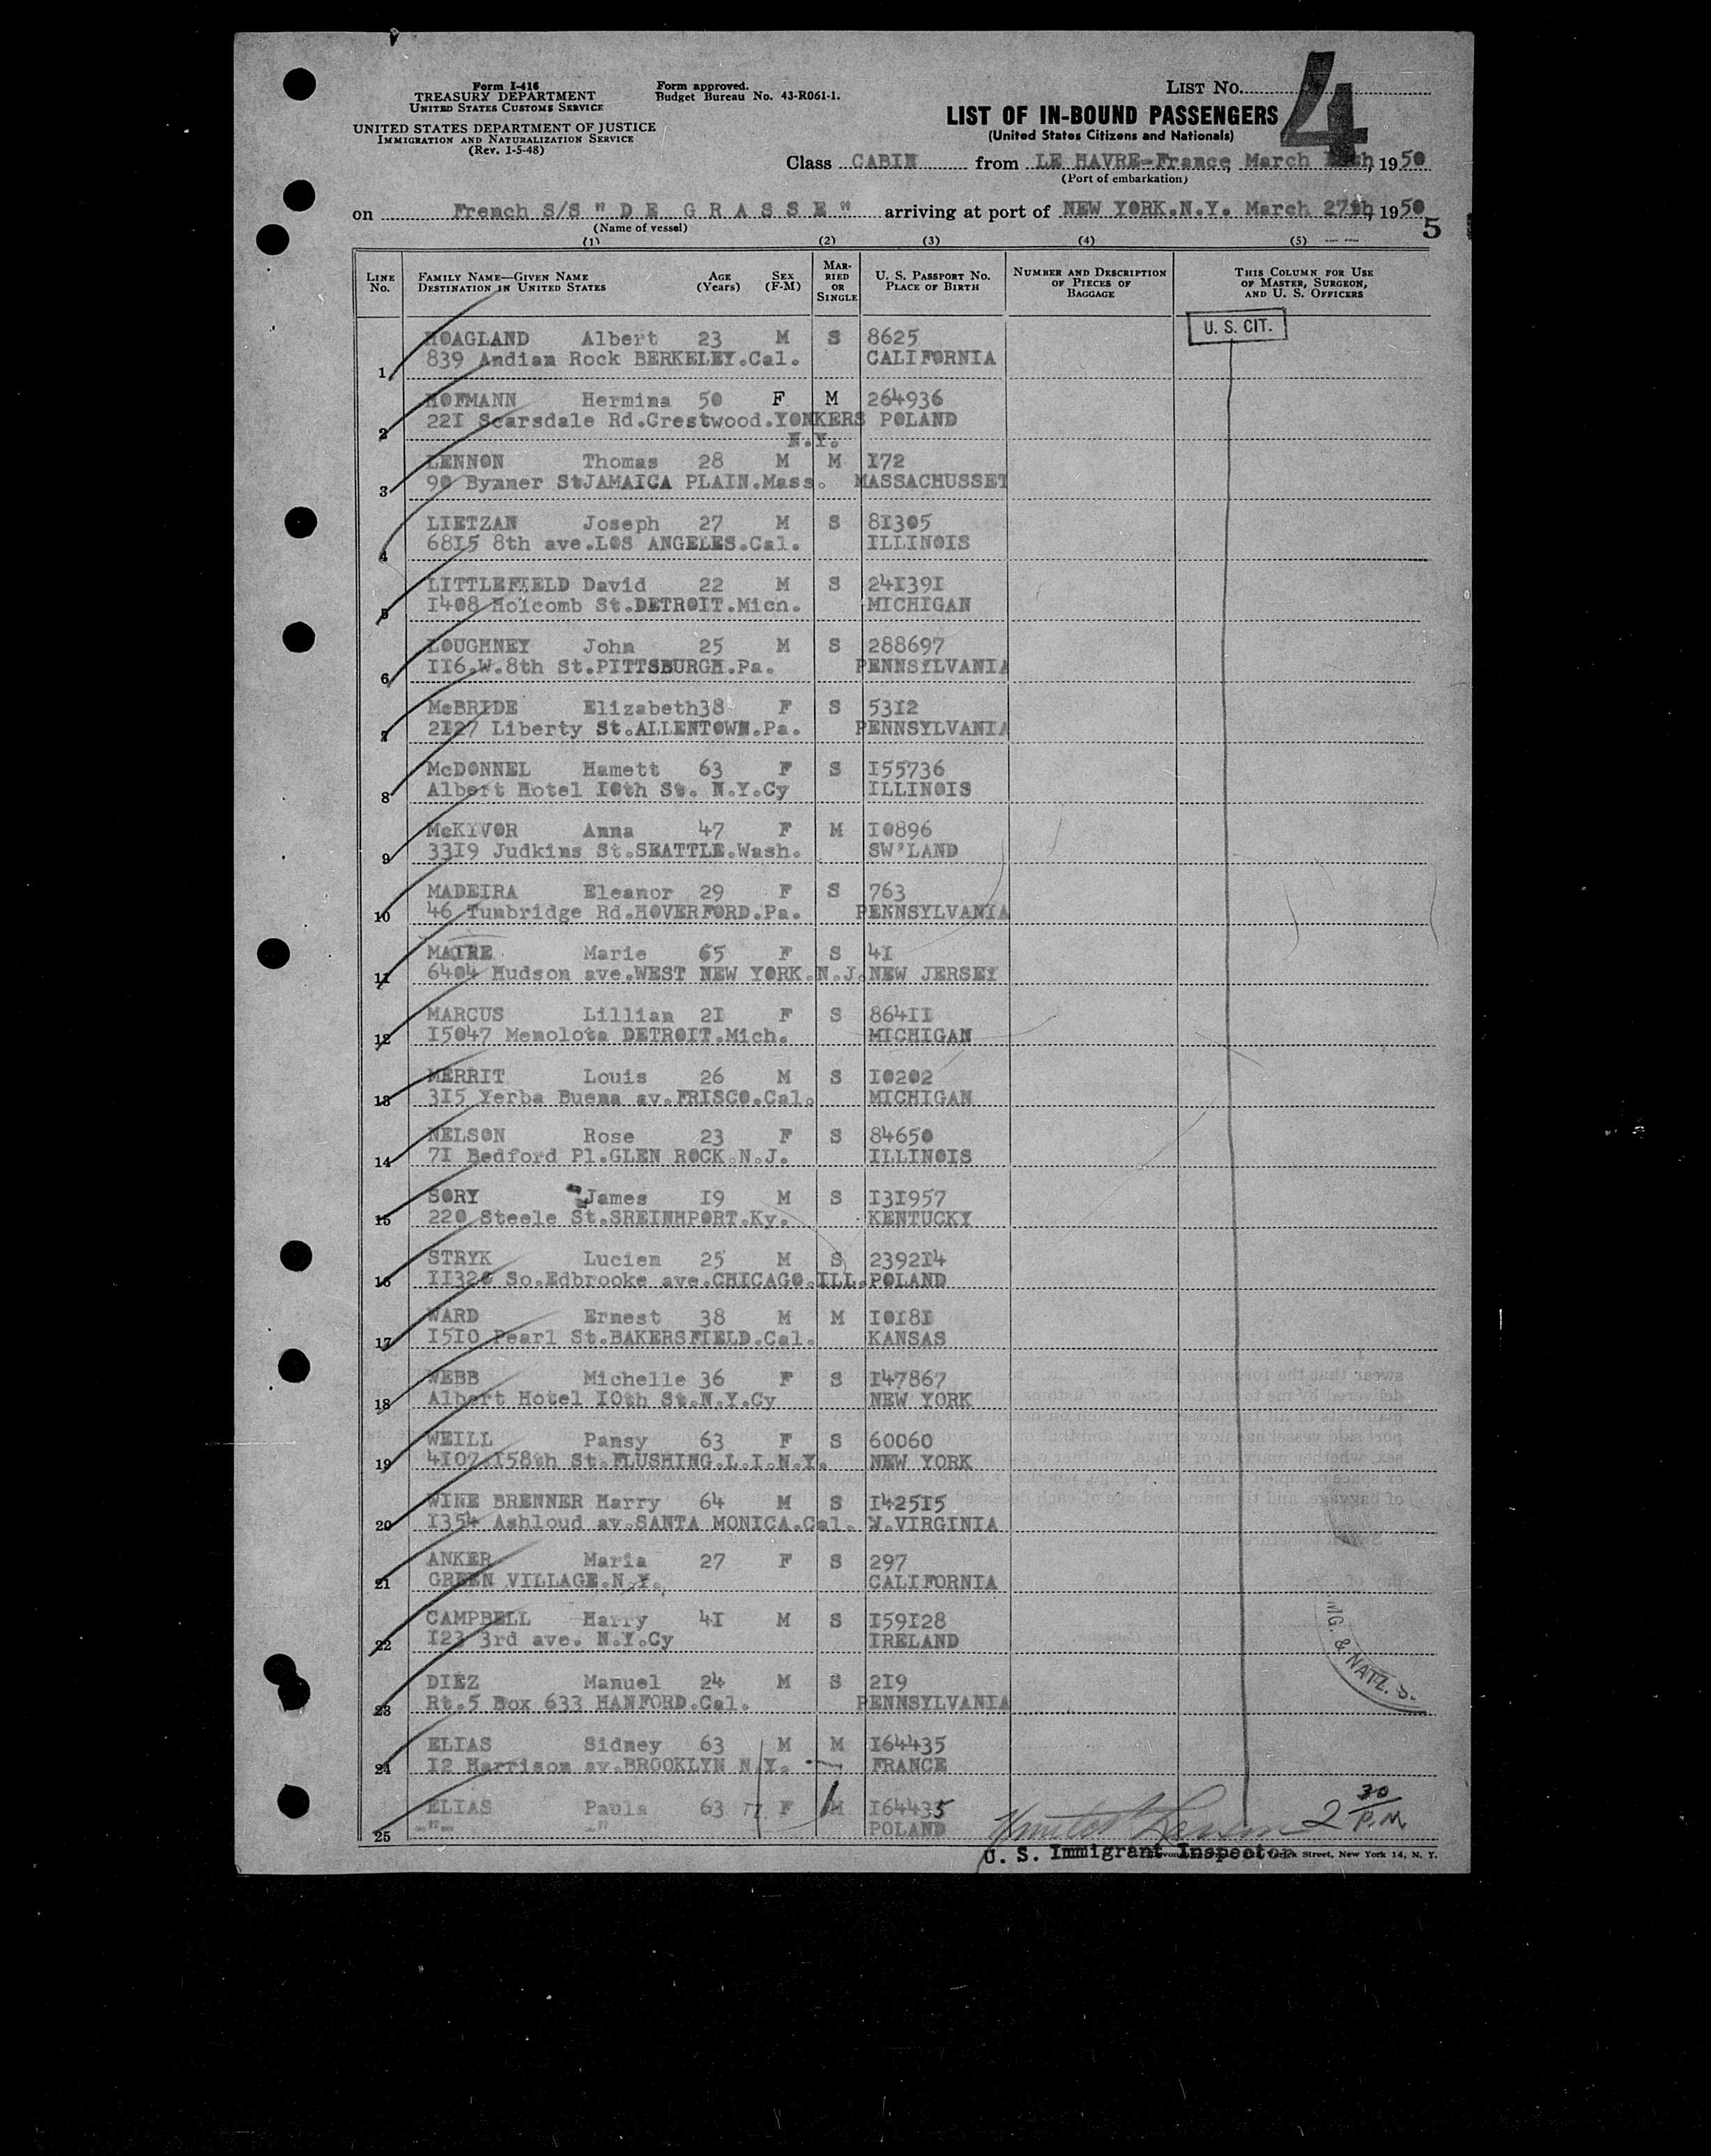 Form I-416
TREASURY DEPARTMENT
UNITED STATES CUSTOMS SERVICE
UNITED STATES DEPARTMENT OF JUSTICE
IMMIGRATION AND NATURALIZATION SERVICE
(Rev. 1-5-48)
Form approved.
Budget Bureau No. 43-R061-1.
LIST No. 4
LIST OF IN-BOUND PASSENGERS
(United States Citizens and Nationals)
Class CABIN from LE HAVRE-France, March , 1950
(Port of embarkation)
on French S/S " D E G R A S S E " arriving at port of NEW YORK.N.Y. March 27th, 1950
(Name of vessel)
5
(1) (2) (3) (4) (5)
LINE No. FAMILY NAME—GIVEN NAME DESTINATION IN UNITED STATES AGE (Years) SEX (F-M) MARRIED OR SINGLE U. S. PASSPORT No. PLACE OF BIRTH NUMBER AND DESCRIPTION OF PIECES OF BAGGAGE THIS COLUMN FOR USE OF MASTER, SURGEON, AND U. S. OFFICERS
U. S. CIT.
HOAGLAND Albert 23 M S 8625
1 839 Andian Rock BERKELEY.Cal. CALIFORNIA
HOFMANN Hermina 50 F M 264936
2 22I Scarsdale Rd.Crestwood.YONKERS POLAND
N.Y.
LENNON Thomas 28 M M I72
3 90 Bynner StJAMAICA PLAIN.Mass. MASSACHUSSET
LIETZAN Joseph 27 M S 8I305
4 68I5 8th ave.LOS ANGELES.Cal. ILLINOIS
LITTLEFIELD David 22 M S 24I39I
5 I408 Holcomb St.DETROIT.Mich. MICHIGAN
LOUGHNEY John 25 M S 288697
6 II6.W.8th St.PITTSBURGH.Pa. PENNSYLVANIA
McBRIDE Elizabeth38 F S 53I2
7 2I27 Liberty St.ALLENTOWN.Pa. PENNSYLVANIA
McDONNEL Hamett 63 F S I55736
8 Albert Hotel I0th St. N.Y.Cy ILLINOIS
McKIVOR Anna 47 F M I0896
9 33I9 Judkins St.SEATTLE.Wash. SW'LAND
MADEIRA Eleanor 29 F S 763
10 46 Tunbridge Rd.HOVERFORD.Pa. PENNSYLVANIA
MAIRE Marie 65 F S 4I
11 6404 Hudson ave.WEST NEW YORK.N.J. NEW JERSEY
MARCUS Lillian 2I F S 864II
12 I5047 Menolota DETROIT.Mich. MICHIGAN
MERRIT Louis 26 M S I0202
13 3I5 Yerba Buena av.FRISCO.Cal. MICHIGAN
NELSON Rose 23 F S 84650
14 7I Bedford Pl.GLEN ROCK.N.J. ILLINOIS
SORY James I9 M S I3I957
15 220 Steele St.SREINHPORT.Ky. KENTUCKY
STRYK Lucien 25 M S 2392I4
16 So.Edbrooke ave.CHICAGO.ILL. POLAND
WARD Ernest 38 M M I0I8I
17 I5I0 Pearl St.BAKERSFIELD.Cal. KANSAS
WEBB Michelle 36 F S I47867
18 Albert Hotel I0th St.N.Y.Cy NEW YORK
WEILL Pansy 63 F S 60060
19 4I07.I58th St.FLUSHING.L.I.N.Y. NEW YORK
WINE BRENNER Harry 64 M S I425I5
20 I354 Ashloud av.SANTA MONICA.Cal. W.VIRGINIA
ANKER Maria 27 F S 297
21 GREEN VILLAGE.N.Y. CALIFORNIA
CAMPBELL Harry 4I M S I59I28
22 I23 3rd ave. N.Y.Cy IRELAND
DIEZ Manuel 24 M S 2I9
23 Rt.5 Box 633 HANFORD.Cal. PENNSYLVANIA
ELIAS Sidney 63 M M I64435
24 I2 Harrison av.BROOKLYN N.Y. FRANCE
ELIAS Paula 63 F M I64435
25 -"- -" POLAND
MG. & NATZ. S.
2 30 P.M.
U. S. Immigrant Inspector
Street, New York 14, N. Y.